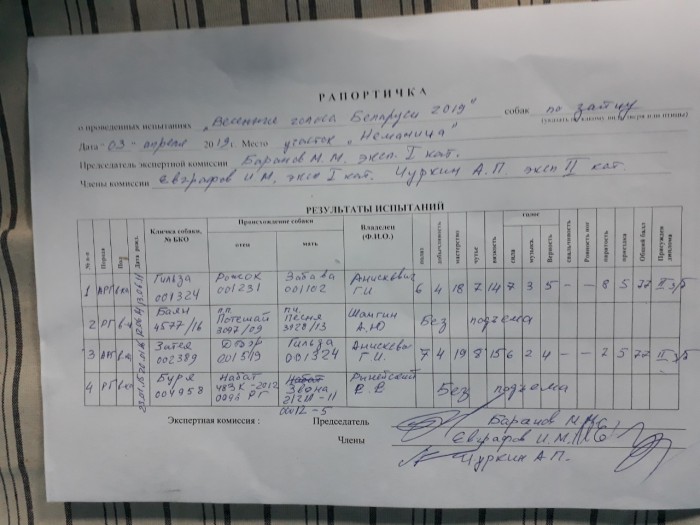 РАПОРТИЧКА
о проведенных испытаниях „Весенние голоса Беларуси 2019" собак по зайцу
Дата "03" апреля 2019 г. Место участок „Неманица"
Председатель экспертной комиссии Баранов М.М. эксп. I кат.
Члены комиссии Евграфов И.М. эксп I кат. Чуркин А.П. эксп II кат.
РЕЗУЛЬТАТЫ ИСПЫТАНИЙ
№ п-п Порода Пол Дата рожд. Кличка собаки, № БКО Происхождение собаки отец мать Владелец (Ф.И.О.) полаз добычливость мастерство чутье вязкость голос сила музыкл. Верность свальчивость Ровность ног паратость приездка Общий балл Присужден диплома
1 Гильза 001324 Рожок 001231 Забава 001102 Анискевич Г.И 6 4 18 7 14 7 3 5 – – 8 5 77
2 РГ Баян 4577/16 пч. Потешай 3097/09 пч. Песня 3020/13 А.Ю Без подъема
3 Затея 002389 001519 Гильза 001324 Анискевич Г.И. 7 4 19 8 15 6 2 4 – – 7 5 77
4 РГ Буря 004958 Набат 0096 РГ Звона 0012-5 Без подъема
Экспертная комиссия : Председатель Баранов М.М.
Члены Евграфов И.М.
Чуркин А.П.